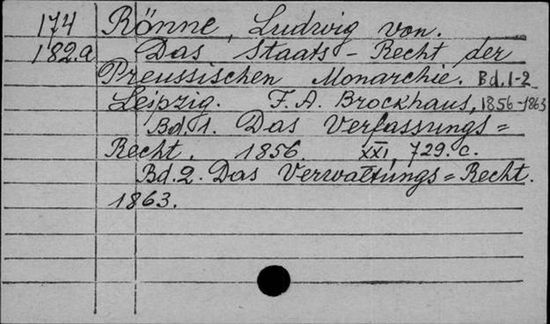 174 Rönne, Ludwig von.
182.a Das Staats-Recht der
Preussischen Monarchie. Bd. 1-2
Leipzig. F. A. Brockhaus, 1856-1863
Bd 1. Das Verfassungs=
Recht. 1856. XXI, 729. c.
Bd. 2. Das Verwaltungs=Recht.
1863.